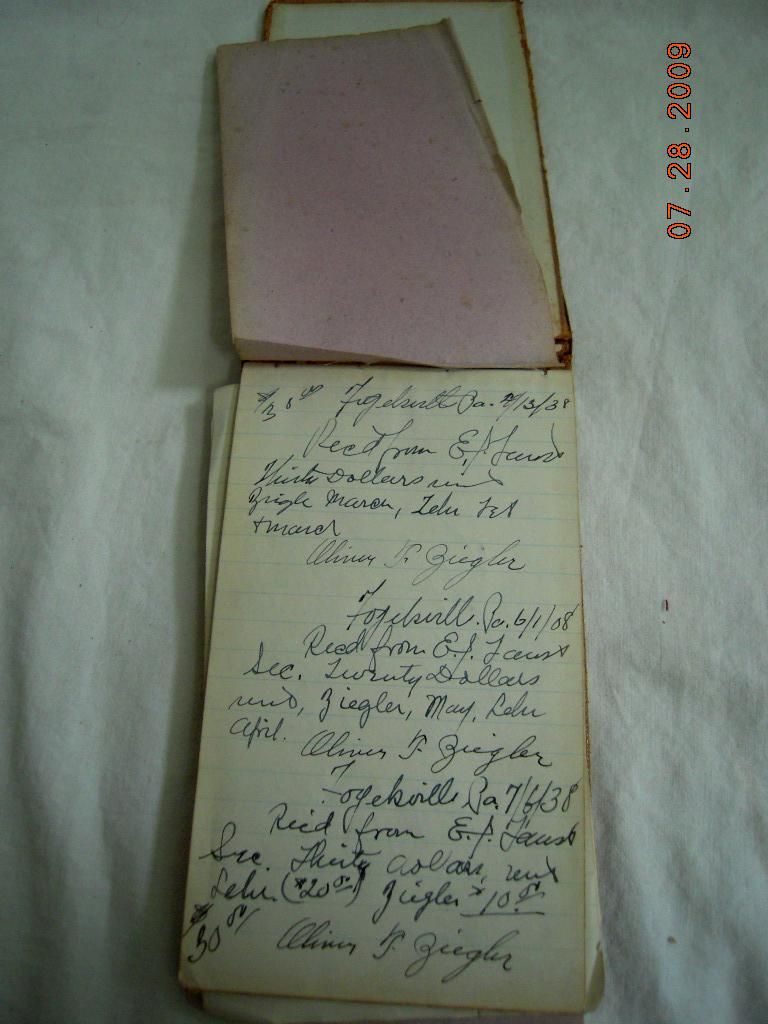 07.28.2009
$30 00 Fogelsville Pa. 4/13/38
Recd from E.J. Faust
Thirty Dollars rent
Ziegle March, Lehr Feb
+ march
Oliver F. Ziegler
Fogelsvill. Pa. 6/1/08
Recd from E.J. Faust
Sec. Twenty Dollars
rent, Ziegler, May, Lehr
April.
Oliver F. Ziegler
Fogelsville Pa. 7/6/38
Recd from E.J. Faust
Sec. Thirty dollars, rent
Lehr. ($20 00) Ziegler $10 00
$30 00/ Oliver F. Ziegler